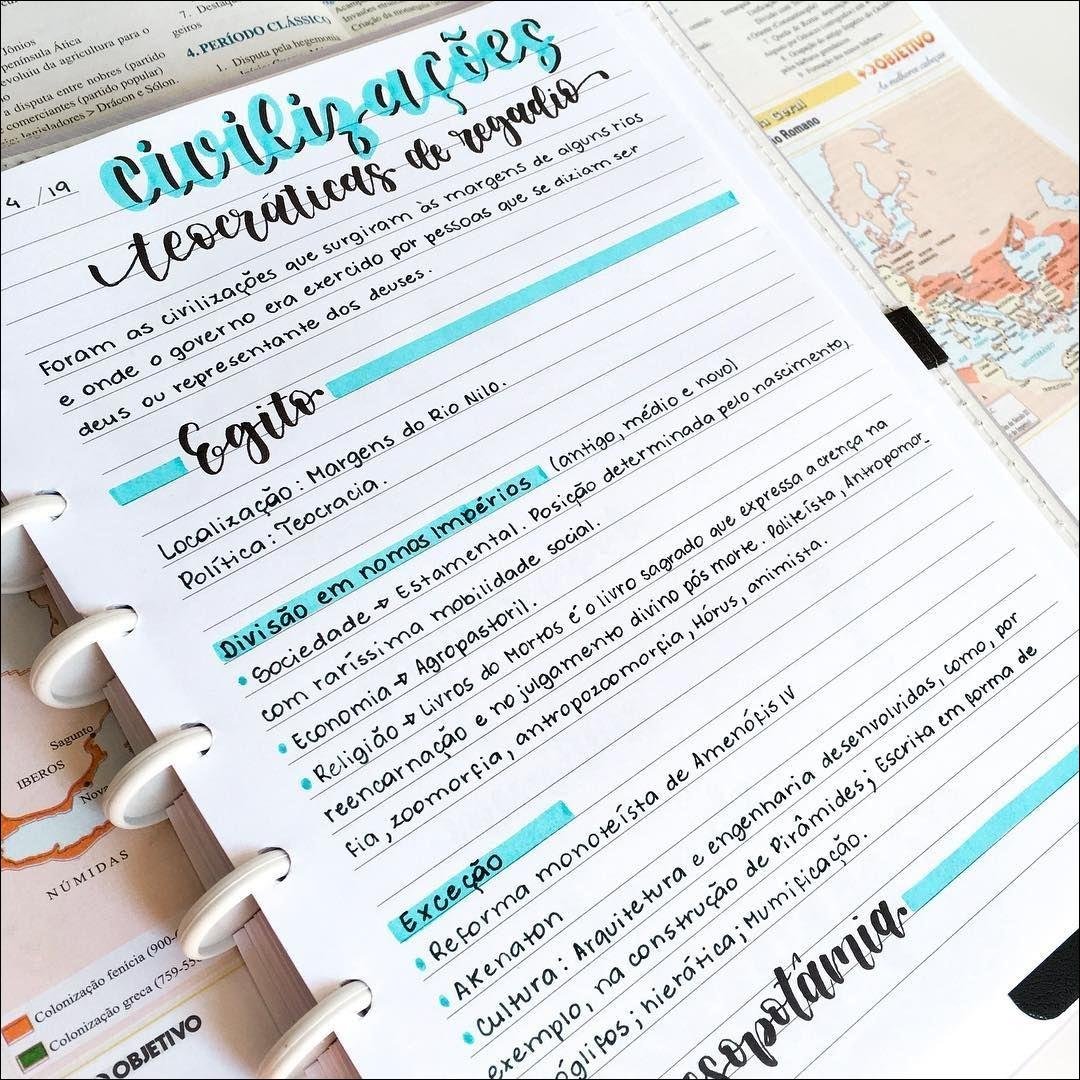 7. Destaq
península Ática
evoluiu da agricultura para o
geiros
disputa entre nobres (partido
comerciantes (partido popular)
legisladores > Drácon e Sólon.
4. PERÍODO CLÁSSICO
1. Disputa pela hegemonia
OBJETIVO
io Romano
4 /19
civilizações
teocráticas de regadio
Foram as civilizações que surgiram às margens de alguns rios
e onde o governo era exercido por pessoas que se diziam ser
deus ou representante dos deuses.
Egito
Localização: Margens do Rio Nilo.
Política: Teocracia.
Divisão em nomos Impérios (antigo, médio e novo)
• Sociedade → Estamental. Posição determinada pelo nascimento,
com raríssima mobilidade social.
• Economia → Agropastoril.
• Religião → Livros do Mortos é o livro sagrado que expressa a crença na
reencarnação e no julgamento divino pós morte. Politeísta, Antropomor_
fia, zoomorfia, antropozoomorfia, Hórus, animista.
Exceção
• Reforma monoteísta de Amenófis IV
• Akenaton
• Cultura: Arquitetura e engenharia desenvolvidas, como, por
exemplo, na construção de Pirâmides; Escrita em forma de
óglifos; hierática; Mumificação.
sopotâmia
Sagunto
IBEROS
Nova
NÚMIDAS
Colonização fenícia (900-
Colonização greca (759-55
OBJETIVO